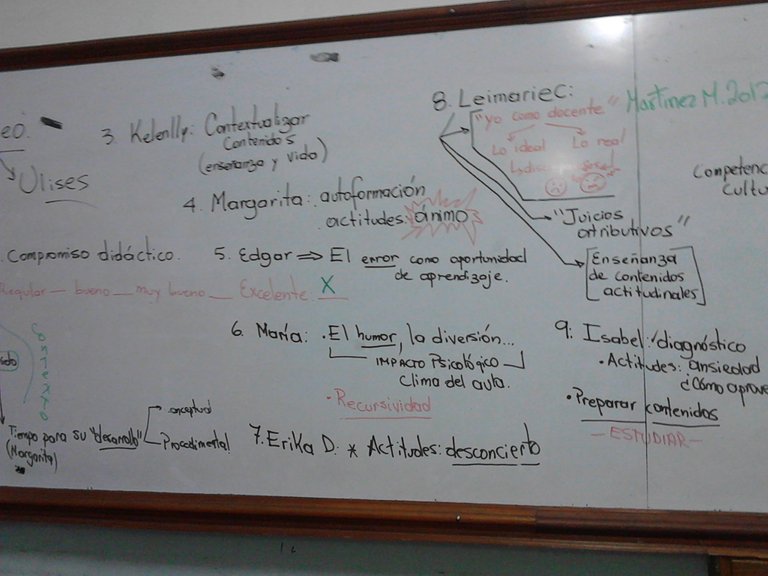 eo.
Ulises
3. Kelenlly: Contextualizar
Contenidos
(enseñanza y vida)
4. Margarita: autoformación
actitudes: ánimo
. Compromiso didáctico.
Regular — bueno — muy bueno — Excelente X
5. Edgar ⇒ El error como oportunidad
de aprendizaje.
6. María: . El humor, la diversión...
IMPACTO Psicológico
Clima del aula.
• Recursividad
Contexto
Tiempo para su "desarrollo"
(Margarita)
conceptual
Procedimental
7. Erika D: * Actitudes: desconcierto
8. Leimariec:
"yo como docente"
Martinez M. 2012
Lo ideal Lo real
Lydia
"Juicios
atributivos"
Enseñanza
de contenidos
actitudinales
Competenc
Cultu
9: Isabel: diagnóstico
• Actitudes: ansiedad
¿Cómo aprove
• Preparar contenidos
— ESTUDIAR —